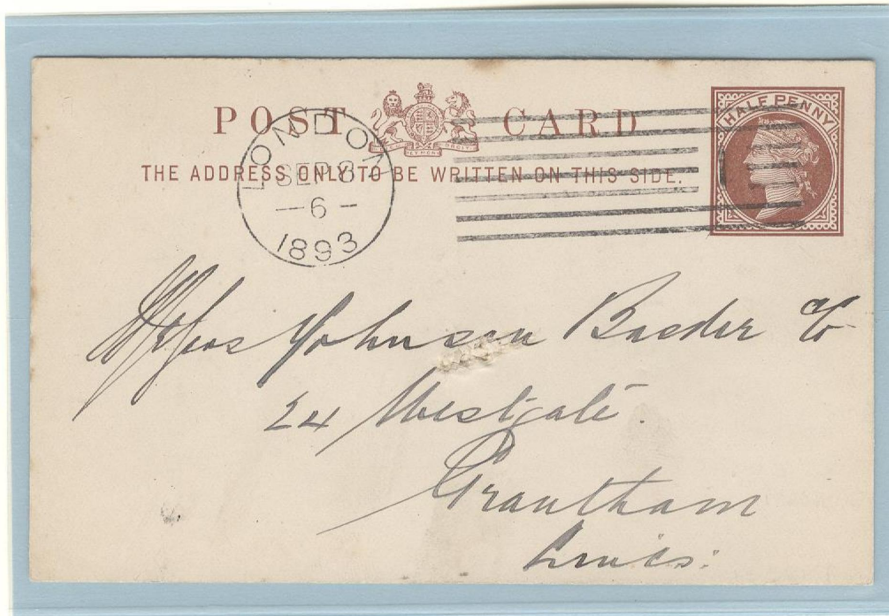 POST CARD
HALF PENNY
THE ADDRESS ONLY TO BE WRITTEN ON THIS SIDE.
LONDON
SEP 8
– 6 –
1893
Messrs Johnson Basder & Co
24 Westgate.
Grantham
Lincs: